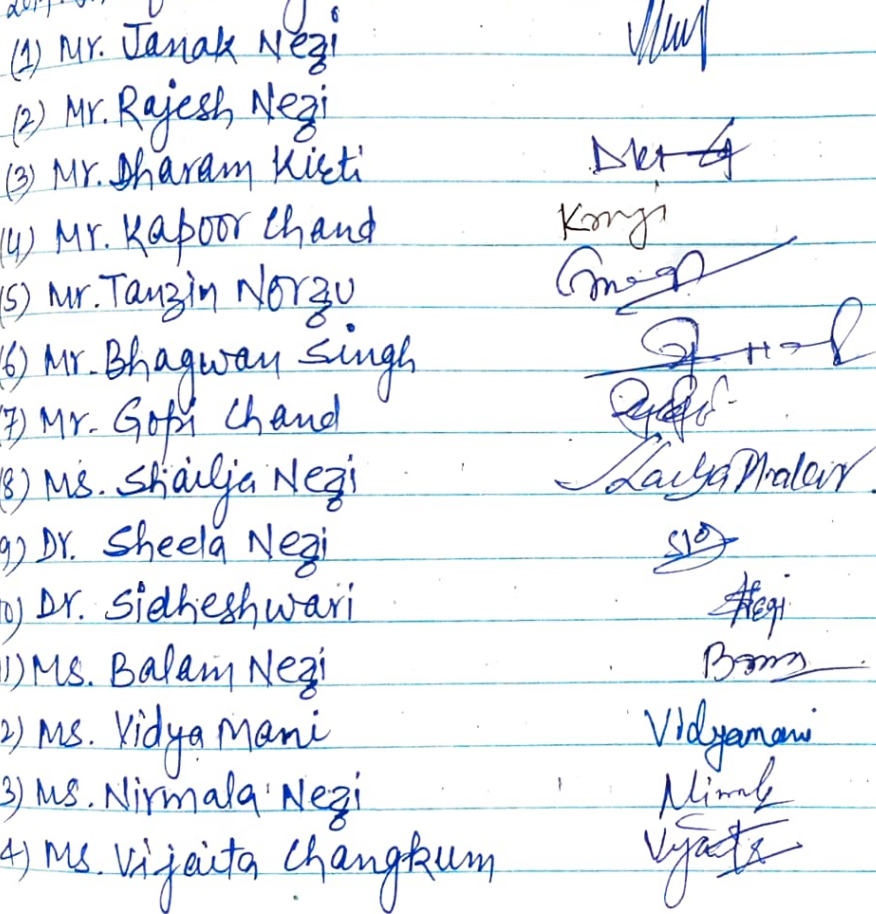 (1) Mr. Janak Nezi
(2) Mr. Rajesh Nezi
(3) Mr. Dharam Kirti
(4) Mr. Kapoor Chand
(5) Mr. Tanzin Norzu
6) Mr. Bhagwan Singh
7) Mr. Gopi Chand
8) Ms. Shailja Nezi
9) Dr. Sheela Nezi
0) Dr. Sidheshwari Negi
1) Ms. Balam Nezi
2) Ms. Vidya Mani Vidyamani
3) Ms. Nirmala Nezi
4) Ms. Vijeita Changkum